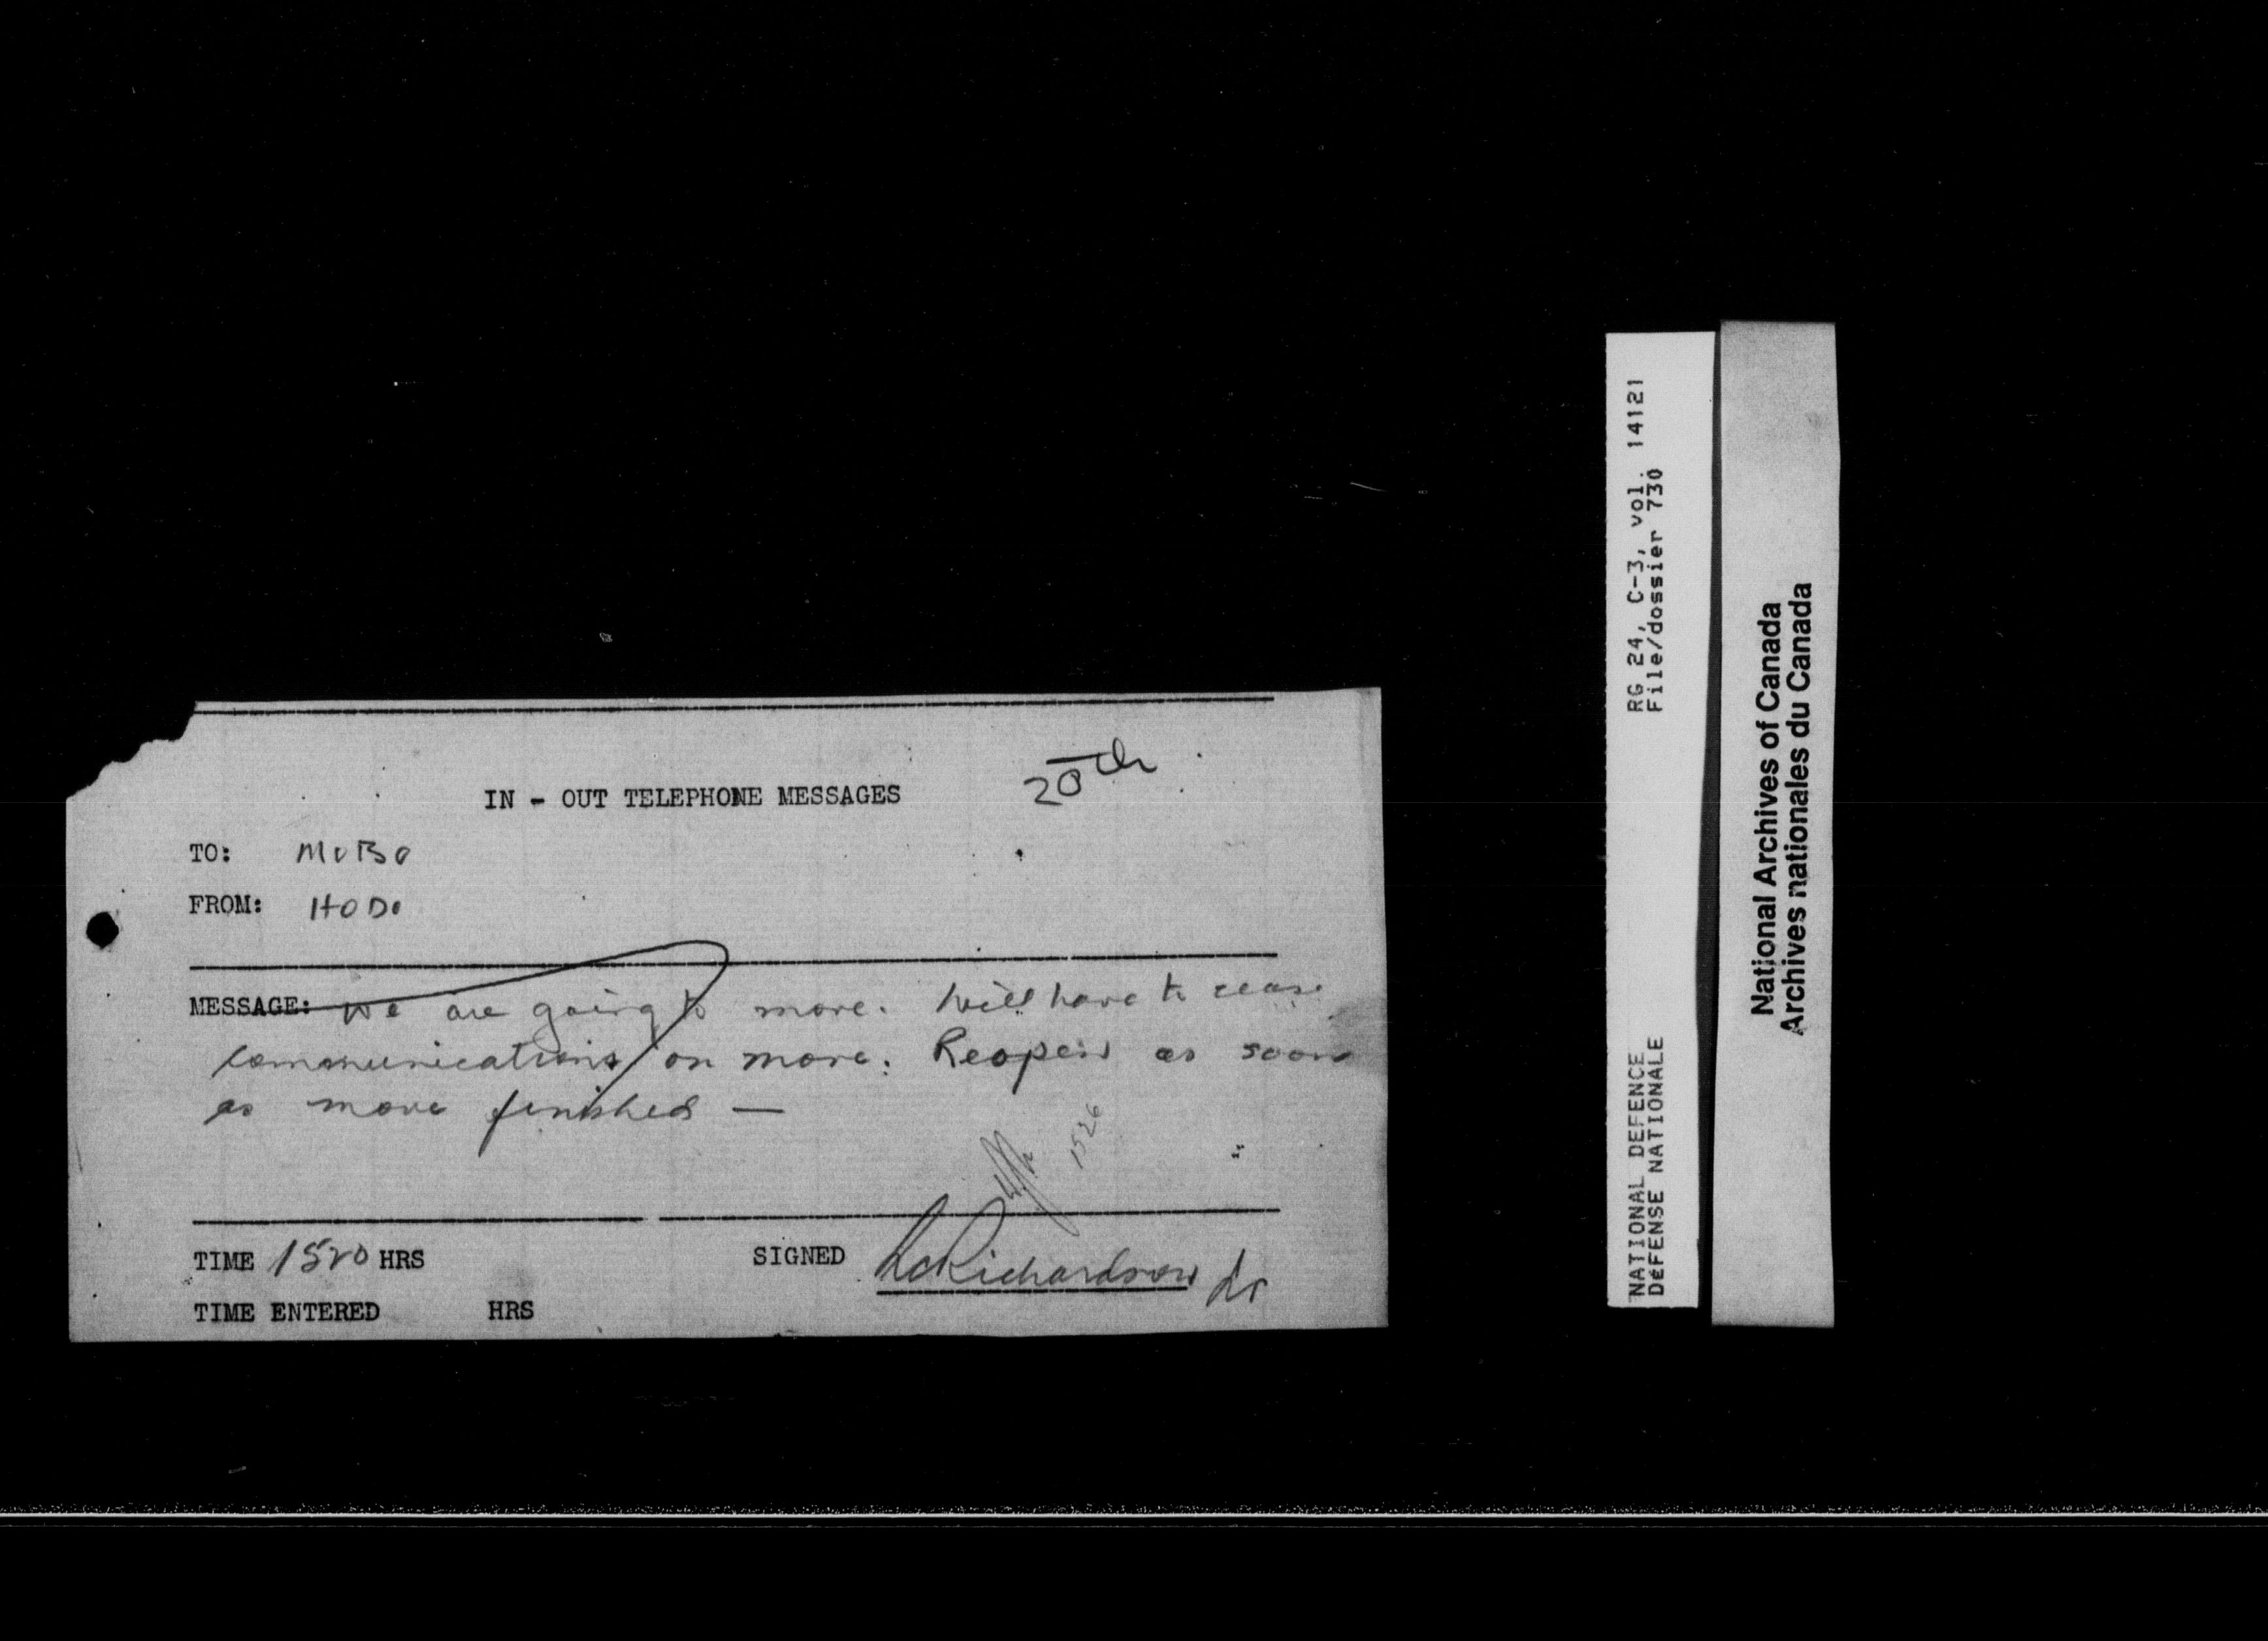 IN - OUT TELEPHONE MESSAGES
20th
TO: MOBO
FROM: HODO
MESSAGE: We are going to move. Will have to cease
communications on move. Reopen as soon
as move finished —
1526
TIME 1520 HRS
SIGNED Richardson
TIME ENTERED HRS
RG 24, C-3, vol. 14121
File/dossier 730
NATIONAL DEFENCE
DéFENSE NATIONALE
National Archives of Canada
Archives nationales du Canada